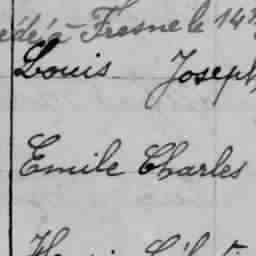 à Fresne le 14
Louis Joseph
Emile Charles